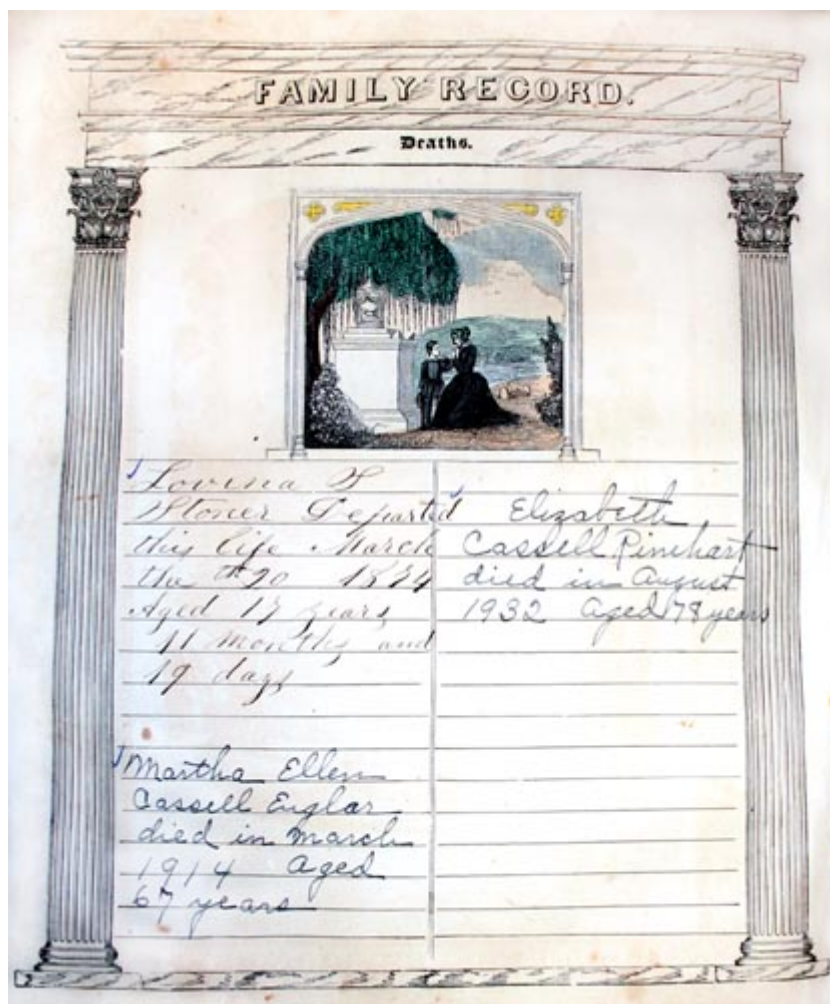 FAMILY RECORD.
Deaths.
Lovina S
Stoner Departed
this life March
the th 20 1874
Aged 17 years
11 months and
19 days
Martha Ellen
Cassell Englar
died in March
1914 aged
67 years
Elizabeth
Cassell Rinehart
died in August
1932 aged 78 years